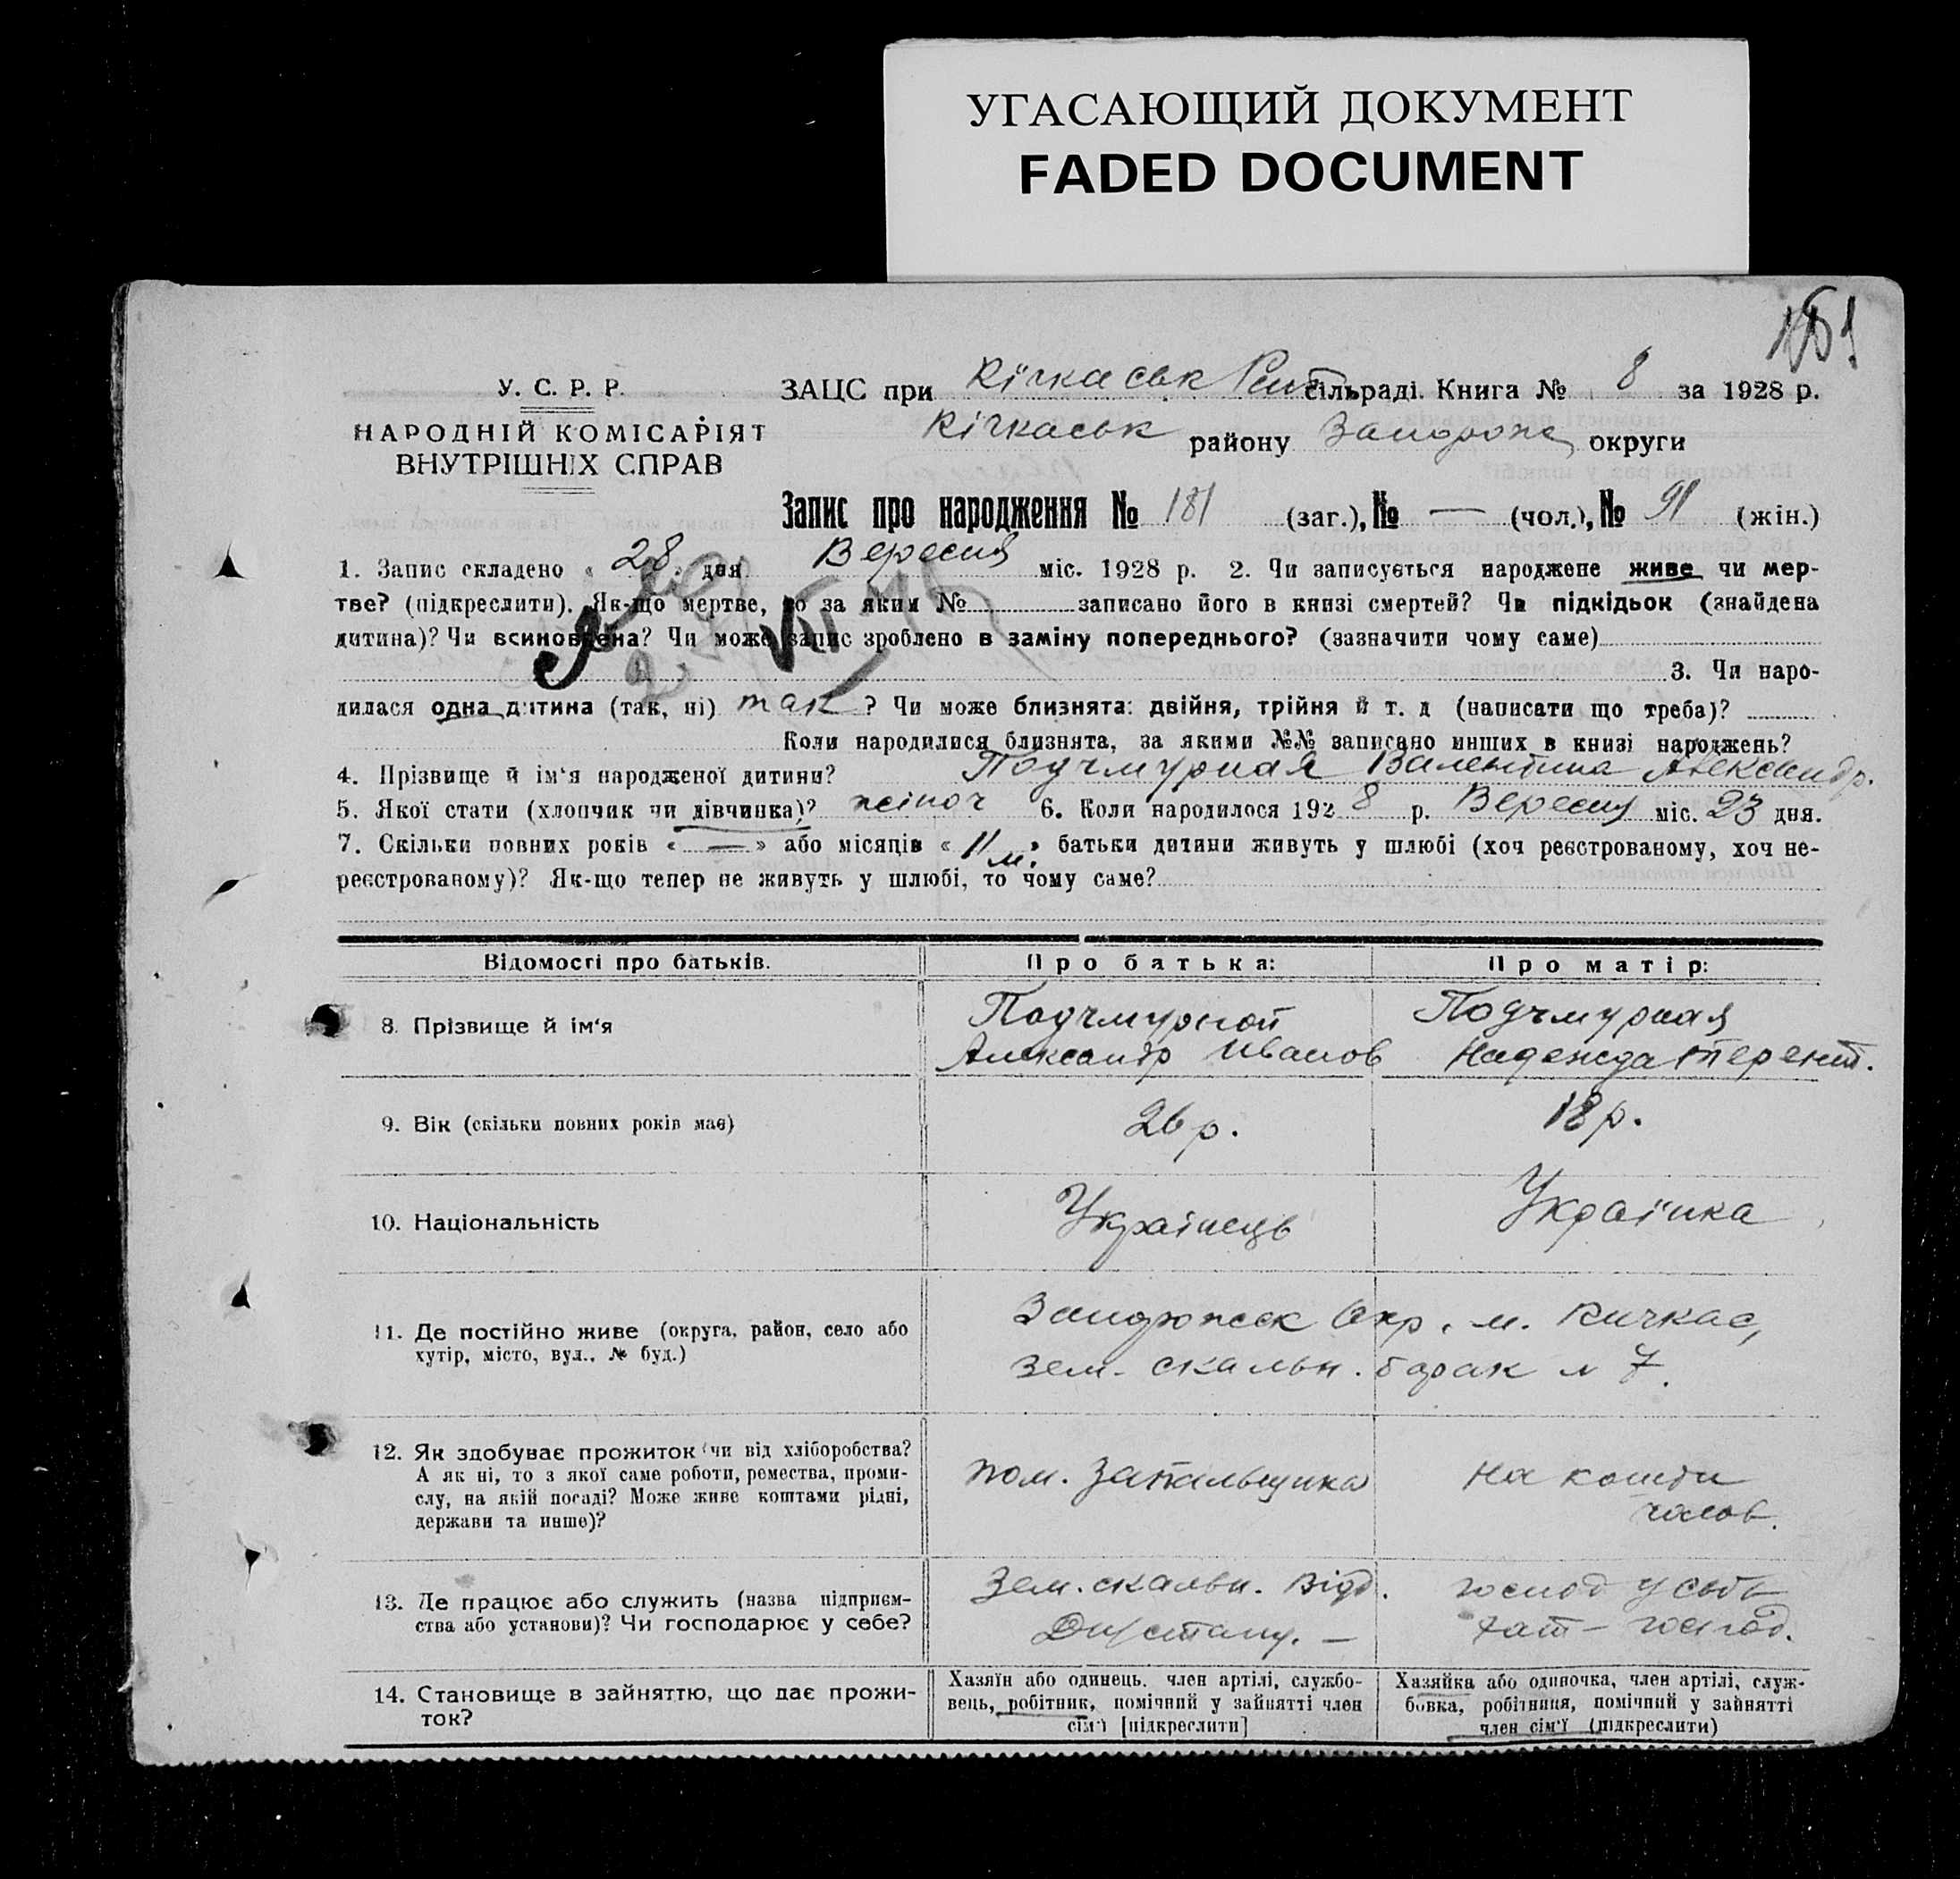 УГАСАЮЩИЙ ДОКУМЕНТ
FADED DOCUMENT
У. С. Р. Р.
НАРОДНІЙ КОМІСАРІЯТ
ВНУТРІШНІХ СПРАВ
ЗАЦС при Кічкаськ сільраді. Книга № 8 за 1928 р.
Кічкаськ району Запорож округи
Запис про народження № 181 (заг.), № — (чол.), № 91 (жін.)
1. Запис складено « 28 » дня Вересня міс. 1928 р. 2. Чи записується народжене живе чи мер-
тве? (підкреслити). Як-що мертве, то за яким № записано його в книзі смертей? Чи підкідьок (знайдена
дитина)? Чи всиновлена? Чи може запис зроблено в заміну попереднього? (зазначити чому саме)
3. Чи наро-
дилася одна дитина (так, ні) так ? Чи може близнята: двійня, трійня й т. д (написати що треба)?
Коли народилися близнята, за якими №№ записано инших в книзі народжень?
4. Прізвище й ім'я народженої дитини? Подчмурная Валентина Александр.
5. Якої стати (хлопчик чи дівчинка)? жіноч 6. Коли народилося 1928 р. Вересня міс. 23 дня.
7. Скільки повних років « — » або місяців « 11 м. » батьки дитини живуть у шлюбі (хоч реєстрованому, хоч не-
реєстрованому)? Як-що тепер не живуть у шлюбі, то чому саме?
Відомості про батьків. Про батька: Про матір:
8. Прізвище й ім'я
Подчмурной
Александр Иванов
Подчмурная
Надежда Терент.
9. Вік (скільки повних років має) 26 р. 18 р.
10. Національність Українець Українка
11. Де постійно живе (округа, район, село або
хутір, місто, вул., № буд.)
Запорожск Окр. м. Кичкас,
зем. скальн. барак № 7.
12. Як здобуває прожиток чи від хліборобства?
А як ні, то з якої саме роботи, ремества, проми-
слу, на якій посаді? Може живе коштами рідні,
держави та инше)?
пом. Запальщика
на кошти
чолов.
13. Де працює або служить (назва підприєм-
ства або установи)? Чи господарює у себе?
Зем. скальн. Відд.
господ у себе
хат — господ.
14. Становище в зайняттю, що дає прожи-
ток?
Хазяїн або одинець, член артілі, службо-
вець, робітник, помічний у зайнятті член
сім'ї [підкреслити]
Хазяйка або одиночка, член артілі, служ-
бовка, робітниця, помічний у зайнятті
член сім'ї (підкреслити)